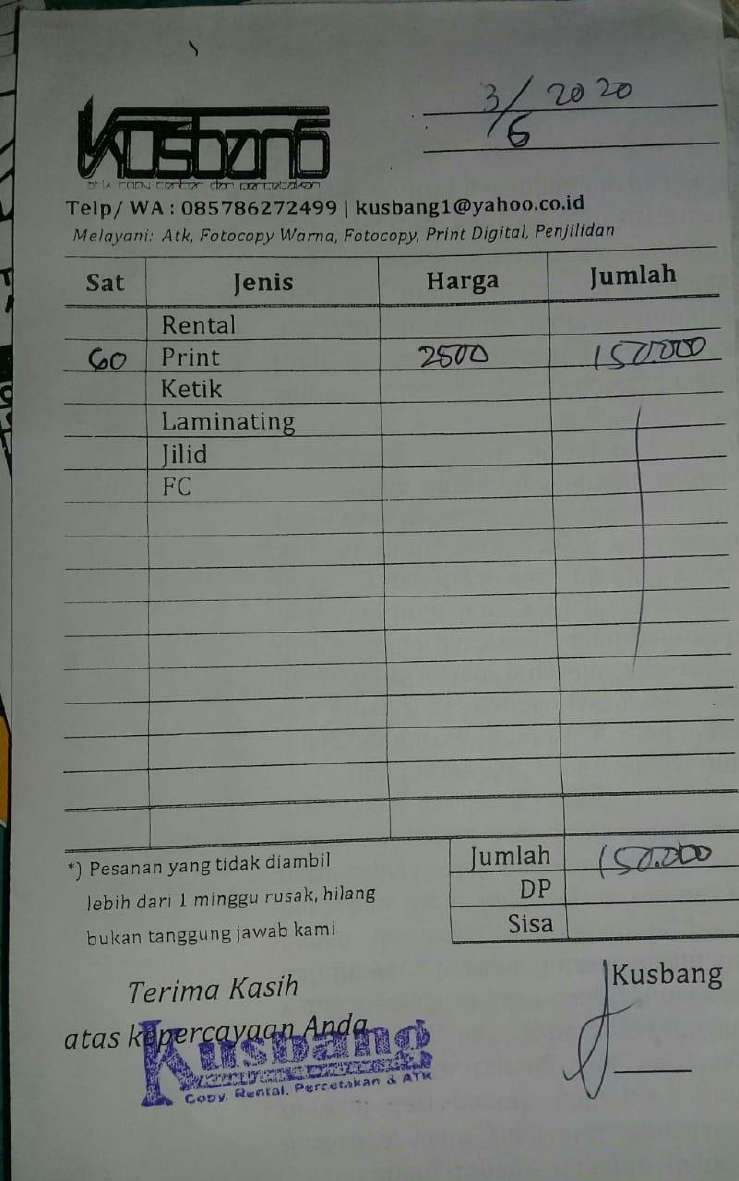 3/6 2020
Kusbang
atk copy center dan percetakan
Telp/ WA : 085786272499 | kusbang1@yahoo.co.id
Melayani: Atk, Fotocopy Warna, Fotocopy, Print Digital, Penjilidan
Sat Jenis Harga Jumlah
Rental
60 Print 2500 150.000
Ketik
Laminating
Jilid
FC
*) Pesanan yang tidak diambil
lebih dari 1 minggu rusak, hilang
bukan tanggung jawab kami
Jumlah 150.000
DP
Sisa
Terima Kasih
atas kepercayaan Anda
Kusbang
Kusbang
Copy, Rental, Percetakan & ATK